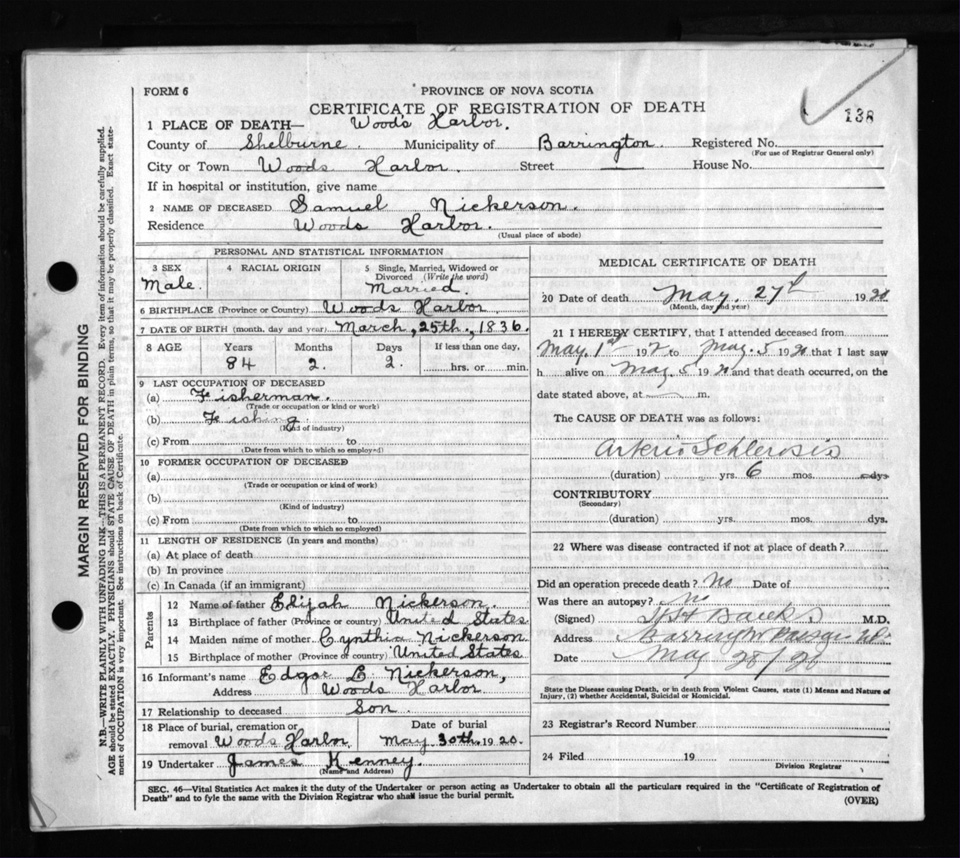 FORM 6
PROVINCE OF NOVA SCOTIA
CERTIFICATE OF REGISTRATION OF DEATH
138
1 PLACE OF DEATH— Woods Harbor.
County of Shelburne. Municipality of Barrington. Registered No.
(For use of Registrar General only)
City or Town Woods Harbor. Street — House No.
If in hospital or institution, give name
2 NAME OF DECEASED Samuel Nickerson.
Residence Woods Harbor.
(Usual place of abode)
PERSONAL AND STATISTICAL INFORMATION
3 SEX Male.
4 RACIAL ORIGIN
5 Single, Married, Widowed or Divorced (Write the word) Married.
6 BIRTHPLACE (Province or Country) Woods Harbor
7 DATE OF BIRTH (month, day and year) March, 25th., 1836.
8 AGE Years Months Days If less than one day,
84 2. 2. hrs. or min.
9 LAST OCCUPATION OF DECEASED
(a) Fisherman.
(Trade or occupation or kind or work)
(b) Fishing
(Kind of industry)
(c) From to
(Date from which to which so employed)
10 FORMER OCCUPATION OF DECEASED
(a)
(Trade or occupation or kind of work)
(b)
(Kind of industry)
(c) From to
(Date from which to which so employed)
11 LENGTH OF RESIDENCE (In years and months)
(a) At place of death
(b) In province
(c) In Canada (if an immigrant)
Parents
12 Name of father Elijah Nickerson.
13 Birthplace of father (Province or country) United States
14 Maiden name of mother Cynthia Nickerson
15 Birthplace of mother (Province or country) United States
16 Informant's name Edgar L. Nickerson,
Address Woods Harbor
17 Relationship to deceased Son
18 Place of burial, cremation or removal Woods Harbor.
Date of burial May 30th. 1920.
19 Undertaker James Kenney.
(Name and Address)
MEDICAL CERTIFICATE OF DEATH
20 Date of death May. 27th 1920
(Month, day and year)
21 I HEREBY CERTIFY, that I attended deceased from
May. 1st 192 to May. 5 1920 that I last saw
h alive on May 5 1920 and that death occurred, on the
date stated above, at m.
The CAUSE OF DEATH was as follows:
Arterio Schlerosis
(duration) yrs. 6 mos. dys
CONTRIBUTORY
(Secondary)
(duration) yrs. mos. dys.
22 Where was disease contracted if not at place of death?
Did an operation precede death? No Date of
Was there an autopsy? No
(Signed) M.D.
Address Barrington Passage N.S.
Date May 28/20
State the Disease causing Death, or in death from Violent Causes, state (1) Means and Nature of
Injury, (2) whether Accidental, Suicidal or Homicidal.
23 Registrar's Record Number
24 Filed 19
Division Registrar
SEC. 46—Vital Statistics Act makes it the duty of the Undertaker or person acting as Undertaker to obtain all the particulars required in the "Certificate of Registration of
Death" and to fyle the same with the Division Registrar who shall issue the burial permit.
(OVER)
MARGIN RESERVED FOR BINDING
N.B.—WRITE PLAINLY WITH UNFADING INK—THIS IS A PERMANENT RECORD. Every item of information should be carefully supplied.
AGE should be stated EXACTLY. PHYSICIANS should STATE CAUSE OF DEATH in plain terms, so that it may be properly classified. Exact statement of OCCUPATION is very important. See instructions on back of Certificate.